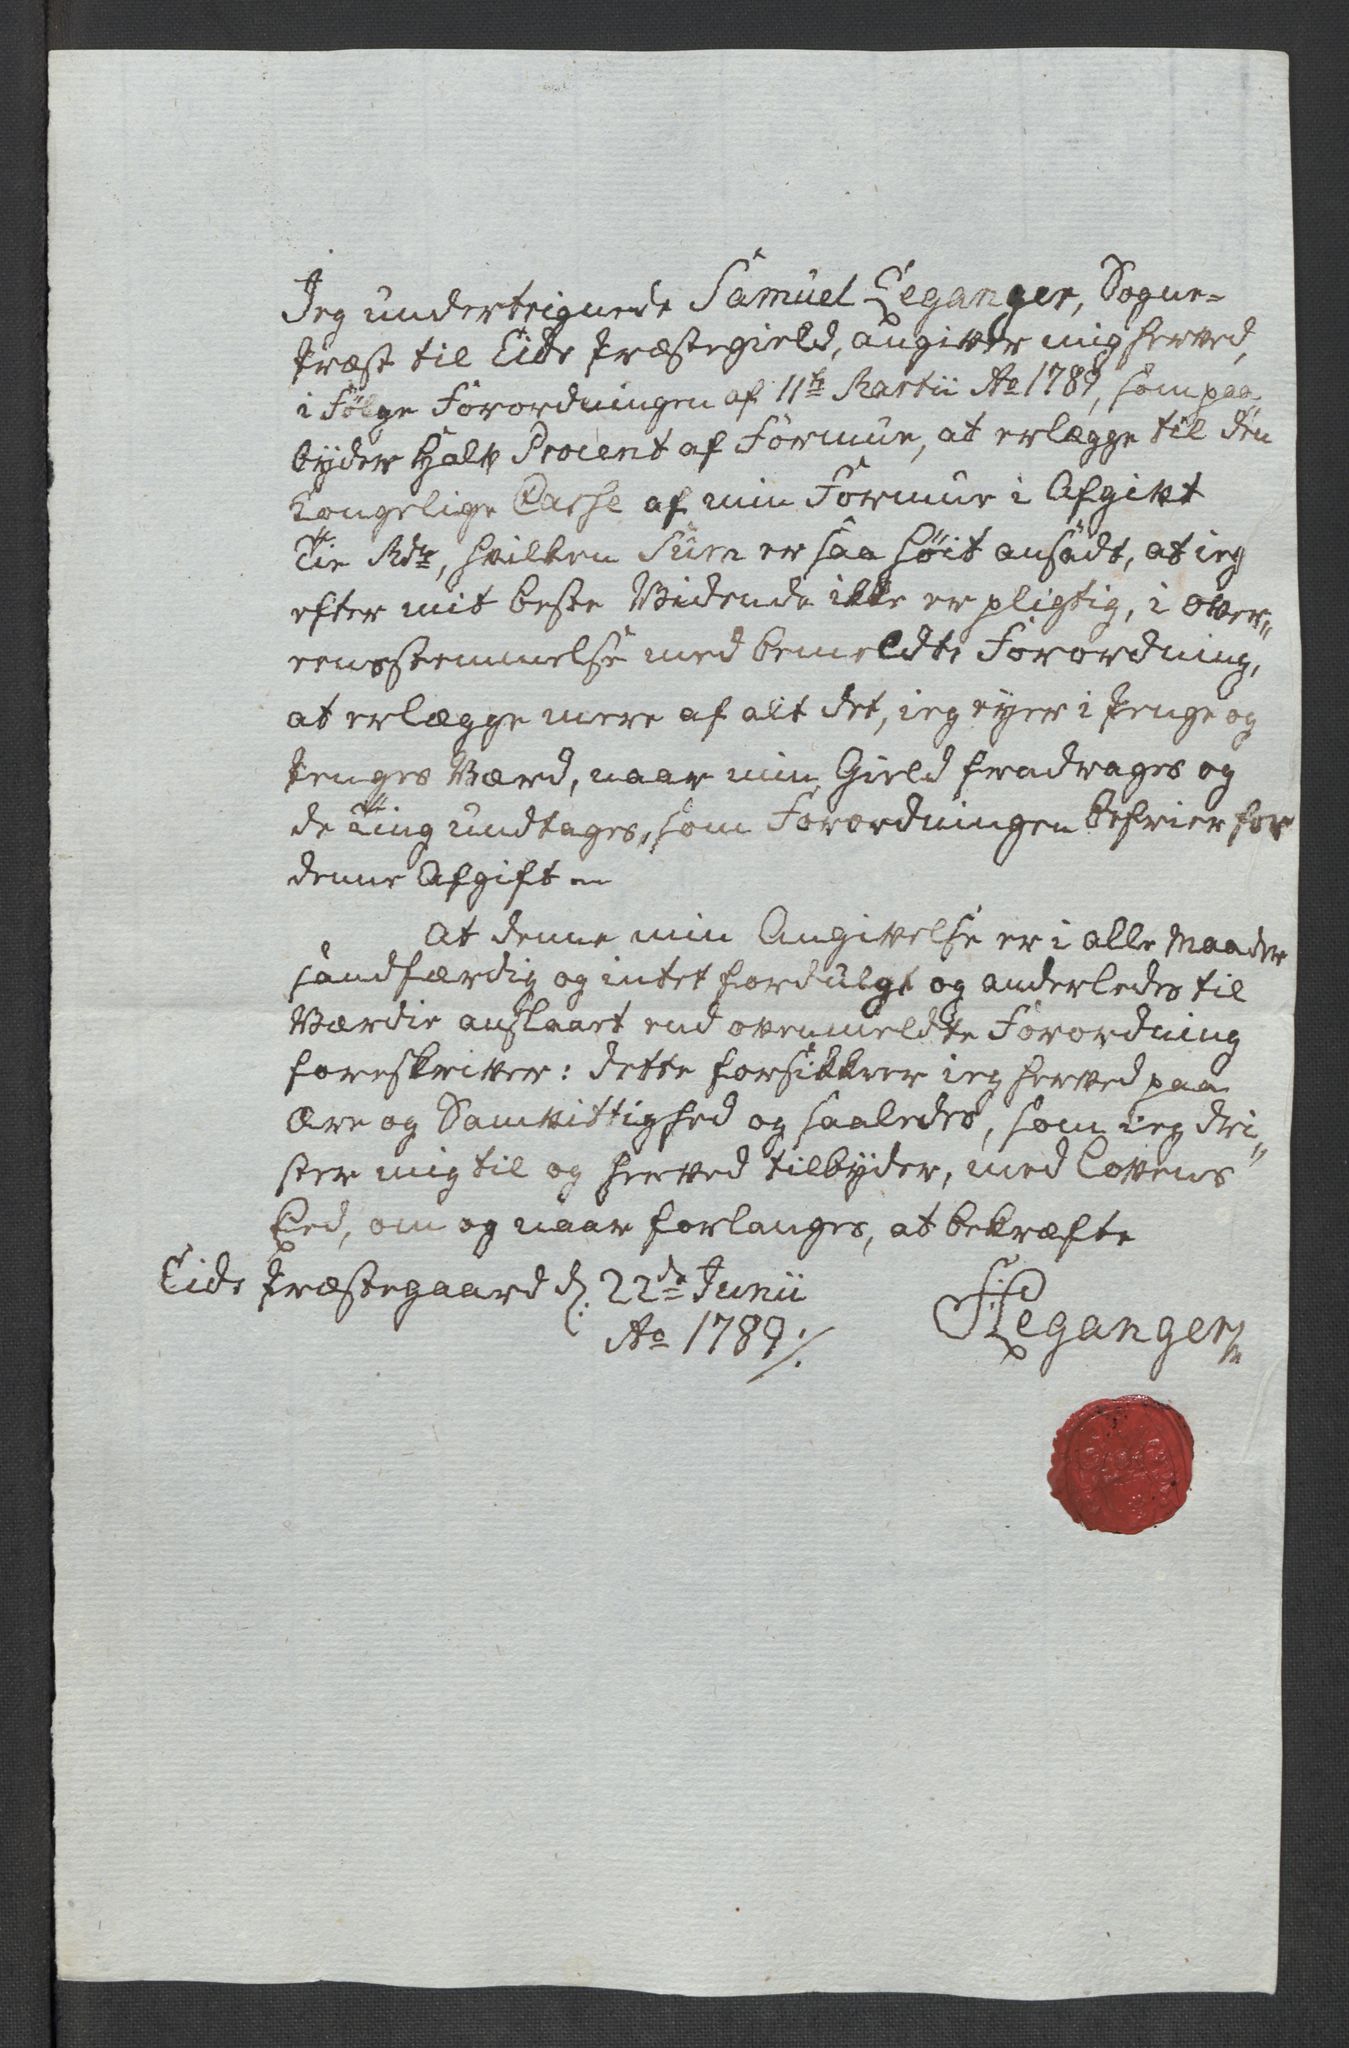 Jeg undertegnede Samuel Leganger, Sogne-
Præst til Eids Præstegield, angiver mig herved,
i Følge Forordningen af 11te Martii Ao 1789, som paa
byder Halv Procent af Formue, at erlægge til den
Kongelige Casse af min Formue i Afgivt
Tie Rdlr, hvilken Sum er saa høit ansadt, at ieg
efter mit beste Vidende ikke er pligtig, i Over„
eensstemmelse med bemeldte Forordning,
at erlægge mere af alt det, ieg eyer i Penge og
Penges Værd, naar min Gield fradrages og
de Ting undtages, som Forordningen befrier for
denne Afgift
At denne min Angivelse er i alle Maader
sandfærdig og intet fordulgt og anderledes til
Værdie anslaaet end ovenmeldte Forordning
foreskriver: dette forsikkrer ieg herved paa
Ære og Samvittighed og saaledes, som ieg dri„
ster mig til og herved tilbyder, med Lovens
Eed, om og naar forlanges, at bekræfte
Eids Præstegaard d. 22de Junii
Ao 1789 ./.
S Leganger